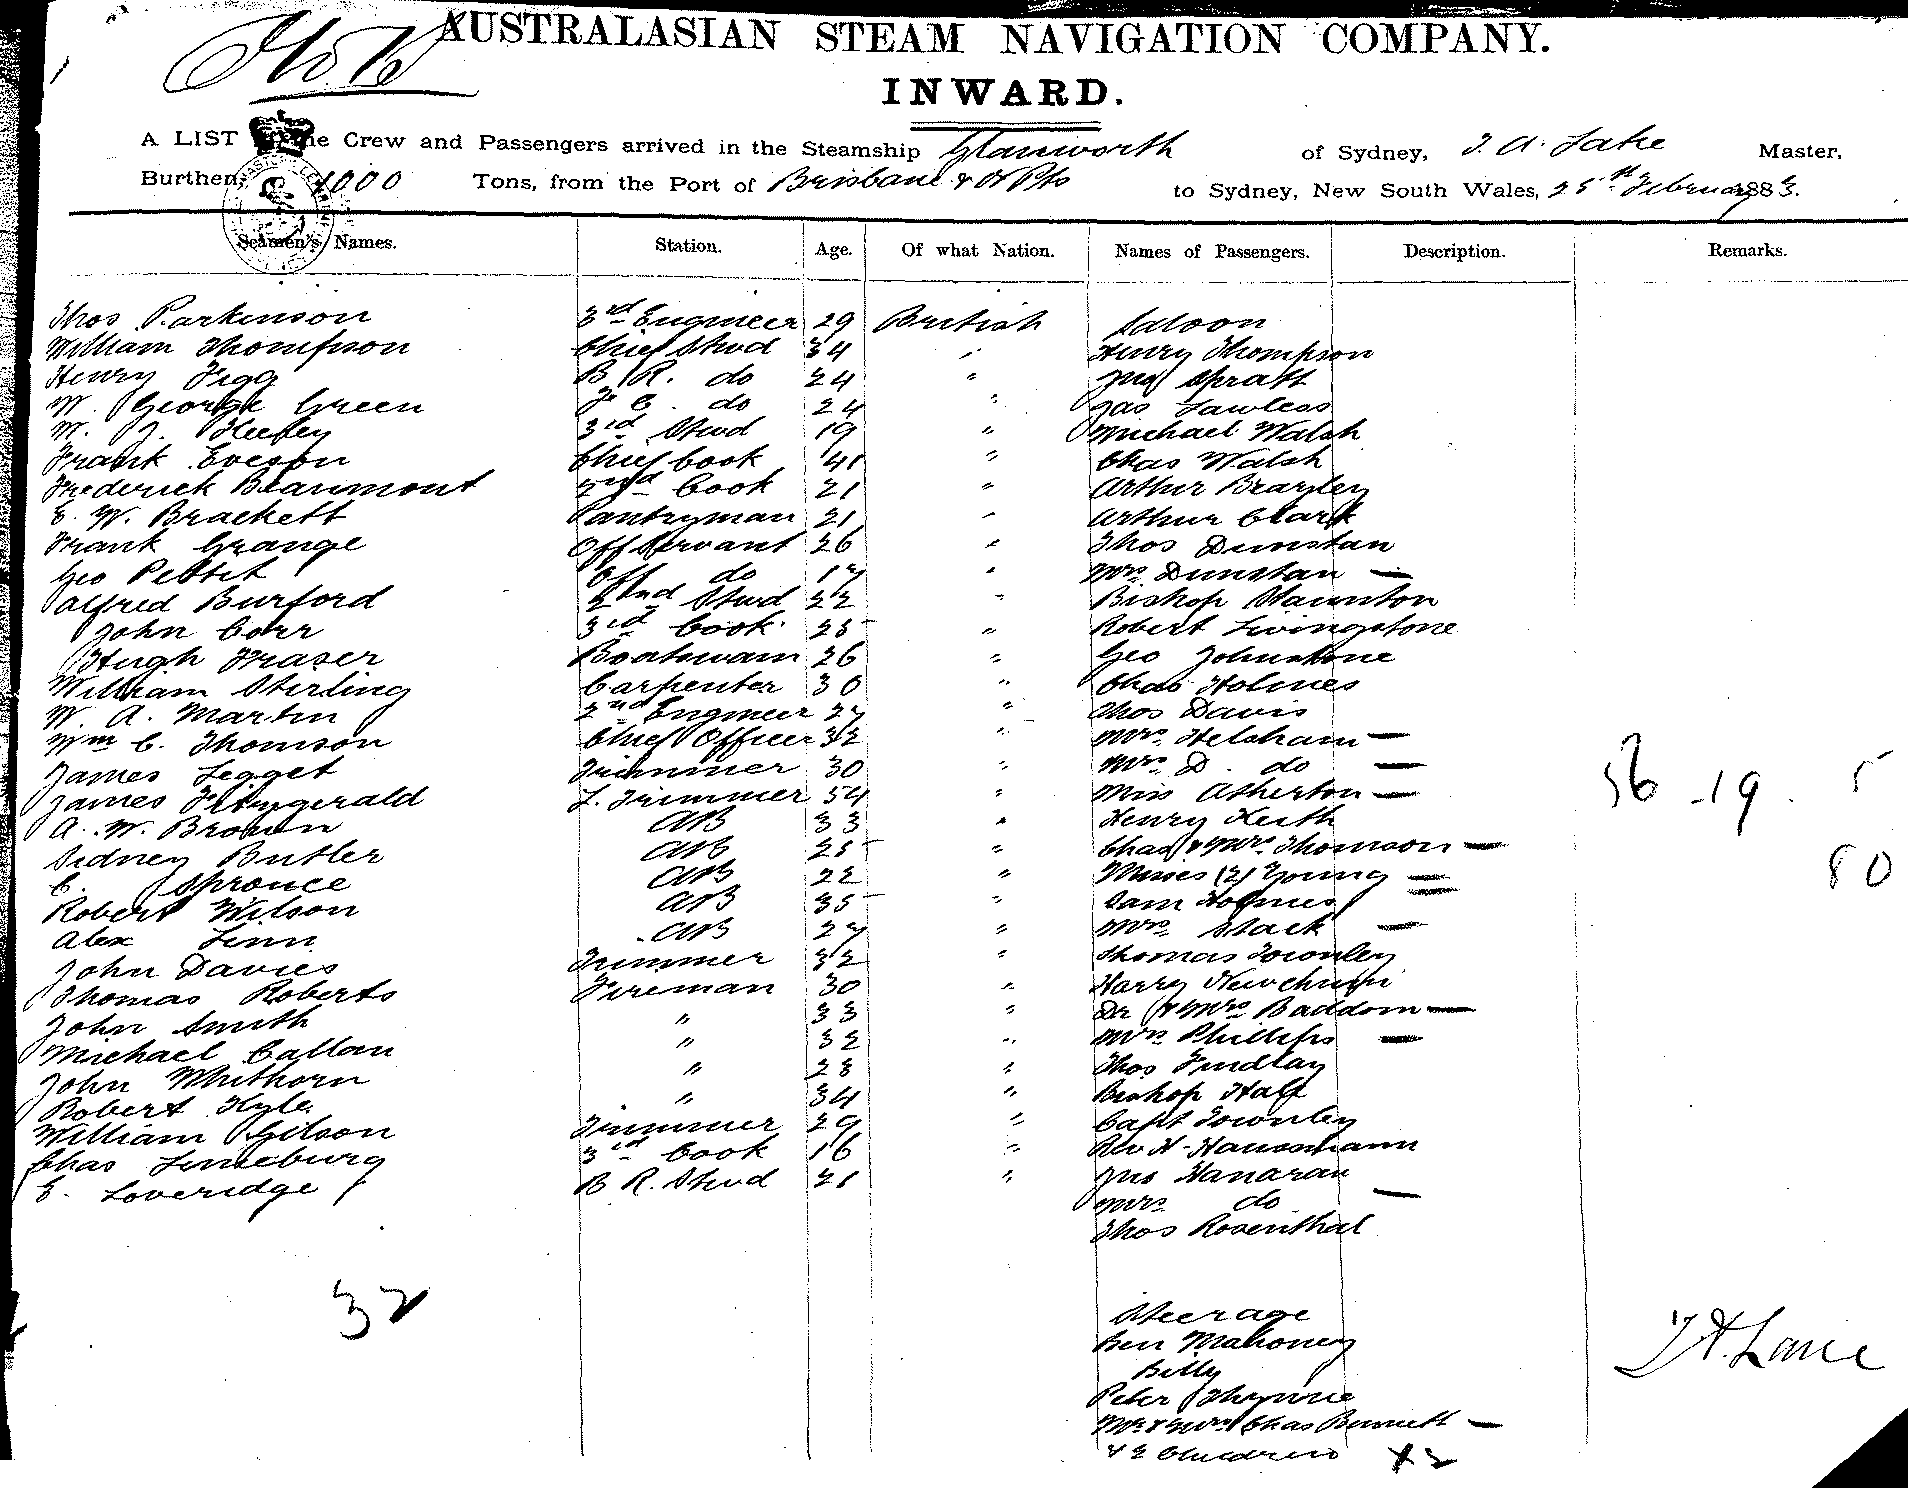 AUSTRALASIAN STEAM NAVIGATION COMPANY.
INWARD.
A LIST of the Crew and Passengers arrived in the Steamship Glanworth of Sydney, J. A. Lake Master,
Burthen, 1000 Tons, from the Port of Brisbane & Or Pts to Sydney, New South Wales, 25th February 1883.
Seamen's Names. Station. Age. Of what Nation. Names of Passengers. Description. Remarks.
Thos Parkinson 3rd Engineer 29 British Saloon
William Thompson Chief Stwd 34 " Henry Thompson
Henry Figg B R. do 24 " Jno Spratt
W. George Green F C. do 24 " Jas Lawless
W. J. Heefey 3rd Stwd 19 " Michael Walsh
Frank Eveson Chief Cook 41 " Chas Walsh
Frederick Beaumont 2nd Cook 21 " Arthur Brayley
E. W. Brackett Pantryman 21 " Arthur Clark
Frank Grange Off Servant 26 " Thos Dunstan
Geo Pettit Off do 17 " Mrs Dunstan —
Alfred Burford 2nd Stwd 22 " Bishop Staunton
John Corr 3rd Cook 25 " Robert Livingstone
Hugh Fraser Boatswain 26 " Geo Johnstone
William Stirling Carpenter 30 " Chas Holmes
W. A. Martin 2nd Engineer 27 " Thos Davis
Wm C. Thomson Chief Officer 32 " Mrs Helsham —
James Legget Trimmer 30 " Mrs D. do —
James Fitzgerald L. Trimmer 54 " Miss Atherton — 56 - 19 . 5
A. W. Brown AB 33 " Henry Keith
Sidney Butler AB 25 " Chas & Mrs Thomson —
C. Sprouce AB 22 " Misses (2) Young = 80
Robert Wilson AB 35 " Sam Holmes
Alex Linn AB 27 " Mrs Stack —
John Davies Trimmer 32 " Thomas Townley
Thomas Roberts Fireman 30 " Harry
John Smith " 33 " Dr & Mrs Baddom —
Michael Callan " 32 " Mrs Phillips —
John Whithorn " 28 " Thos Findlay
Robert Kyle " 34 " Bishop Hale
William Gilson Trimmer 29 " Capt Townley
Chas Luneburg 3rd Cook 16 " Rev H. Haussmann
E. Loveridge B R. Stwd 21 " Jno Hanaran
Mrs do —
Thos Rosenthal
32
Steerage
Ben Mahoney
Billy
Peter Thynne
Mr & Mrs Chas Bennett —
& 2 Children X2